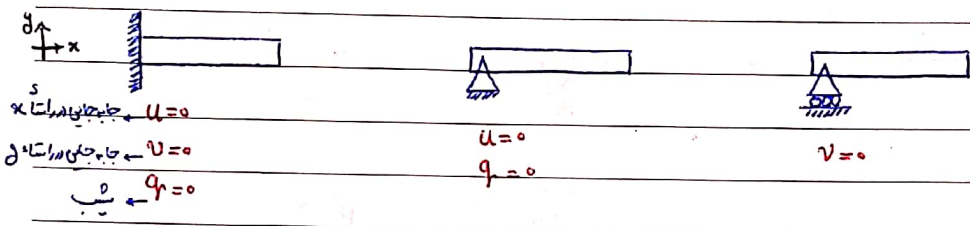 y
x
جابجایی در راستای x ← u=0
جابجایی در راستای y ← v=0
شیب ← φ=0
u=0
φ=0
v=0